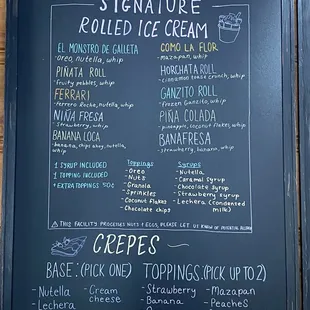 SIGNATURE
ROLLED ICE CREAM
EL MONSTRO DE GALLETA
- Oreo, nutella, whip
PIÑATA ROLL
- fruity pebbles, whip
FERRARI
- ferrero Roche, nutella, whip
NIÑA FRESA
- Strawberry, whip
BANANA LOCA
- banana, chips ahoy, nutella, whip
COMO LA FLOR
- mazapan, whip
HORCHATA ROLL
- cinnamon toast crunch, whip
GANZITO ROLL
- frozen Ganzito, whip
PIÑA COLADA
- pineapple, coconut flakes, whip
BANAFRESA
- strawberry, banana, whip
1 SYRUP INCLUDED
1 TOPPING INCLUDED
+ EXTRA TOPPINGS 50¢
Toppings
- Oreo
- Nuts
- Granola
- Sprinkles
- Coconut flakes
- Chocolate chips
Syrups
- Nutella
- Caramel syrup
- Chocolate syrup
- Strawberry syrup
- Lechera (condensed milk)
⚠ THIS FACILITY PROCESSES NUTS & EGGS, PLEASE LET US KNOW OF
CREPES
BASE: (PICK ONE)
- Nutella
- Lechera
- Cream cheese
TOPPINGS: (PICK UP TO 2)
- Strawberry
- Banana
- Mazapan
- Peaches